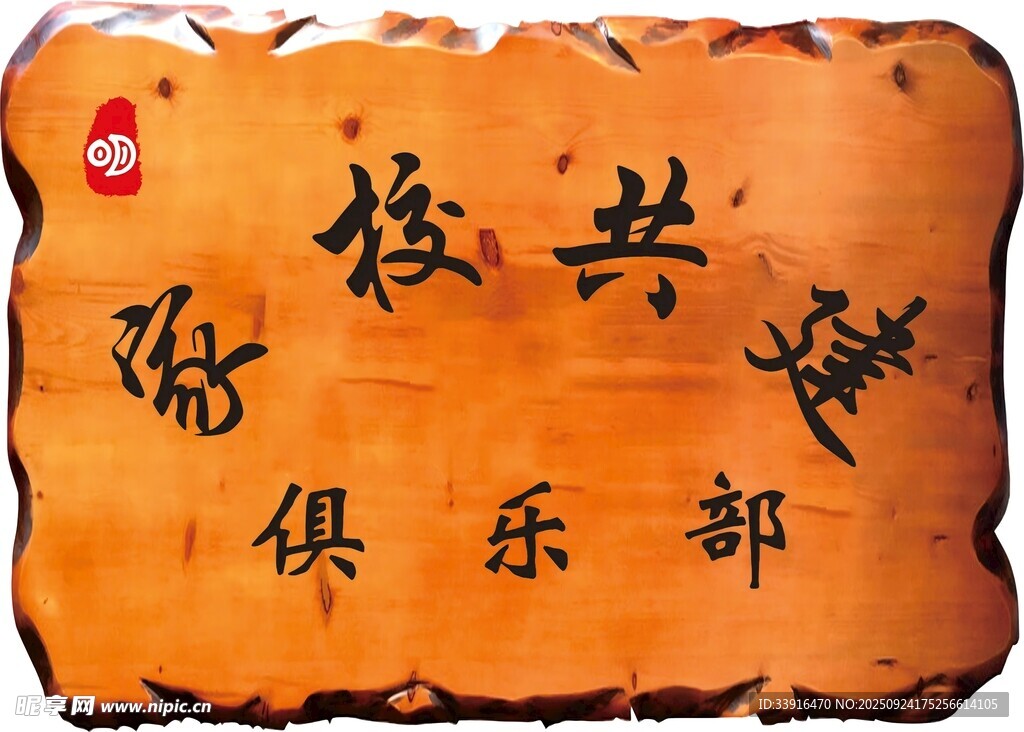 家校共建
俱乐部
昵享网 www.nipic.cn
ID:33916470 NO:20250924175256614105